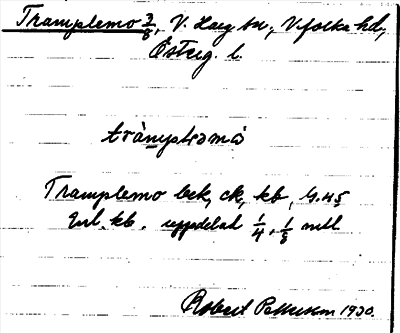 Tramplemo 3/8, V. Harg sn, Vifolka hd,
Österg. l.
trànnstrəmò
Tramplemo bek, ck, kb, G.45
Enl. kb. uppdelad 1/4, 1/8 mtl
Robert Pettersson 1930.